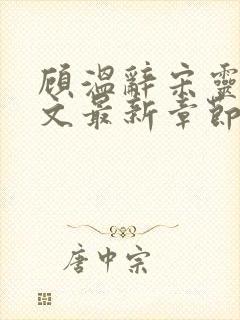 顾温辞宋灵
文最新章节
唐中宗